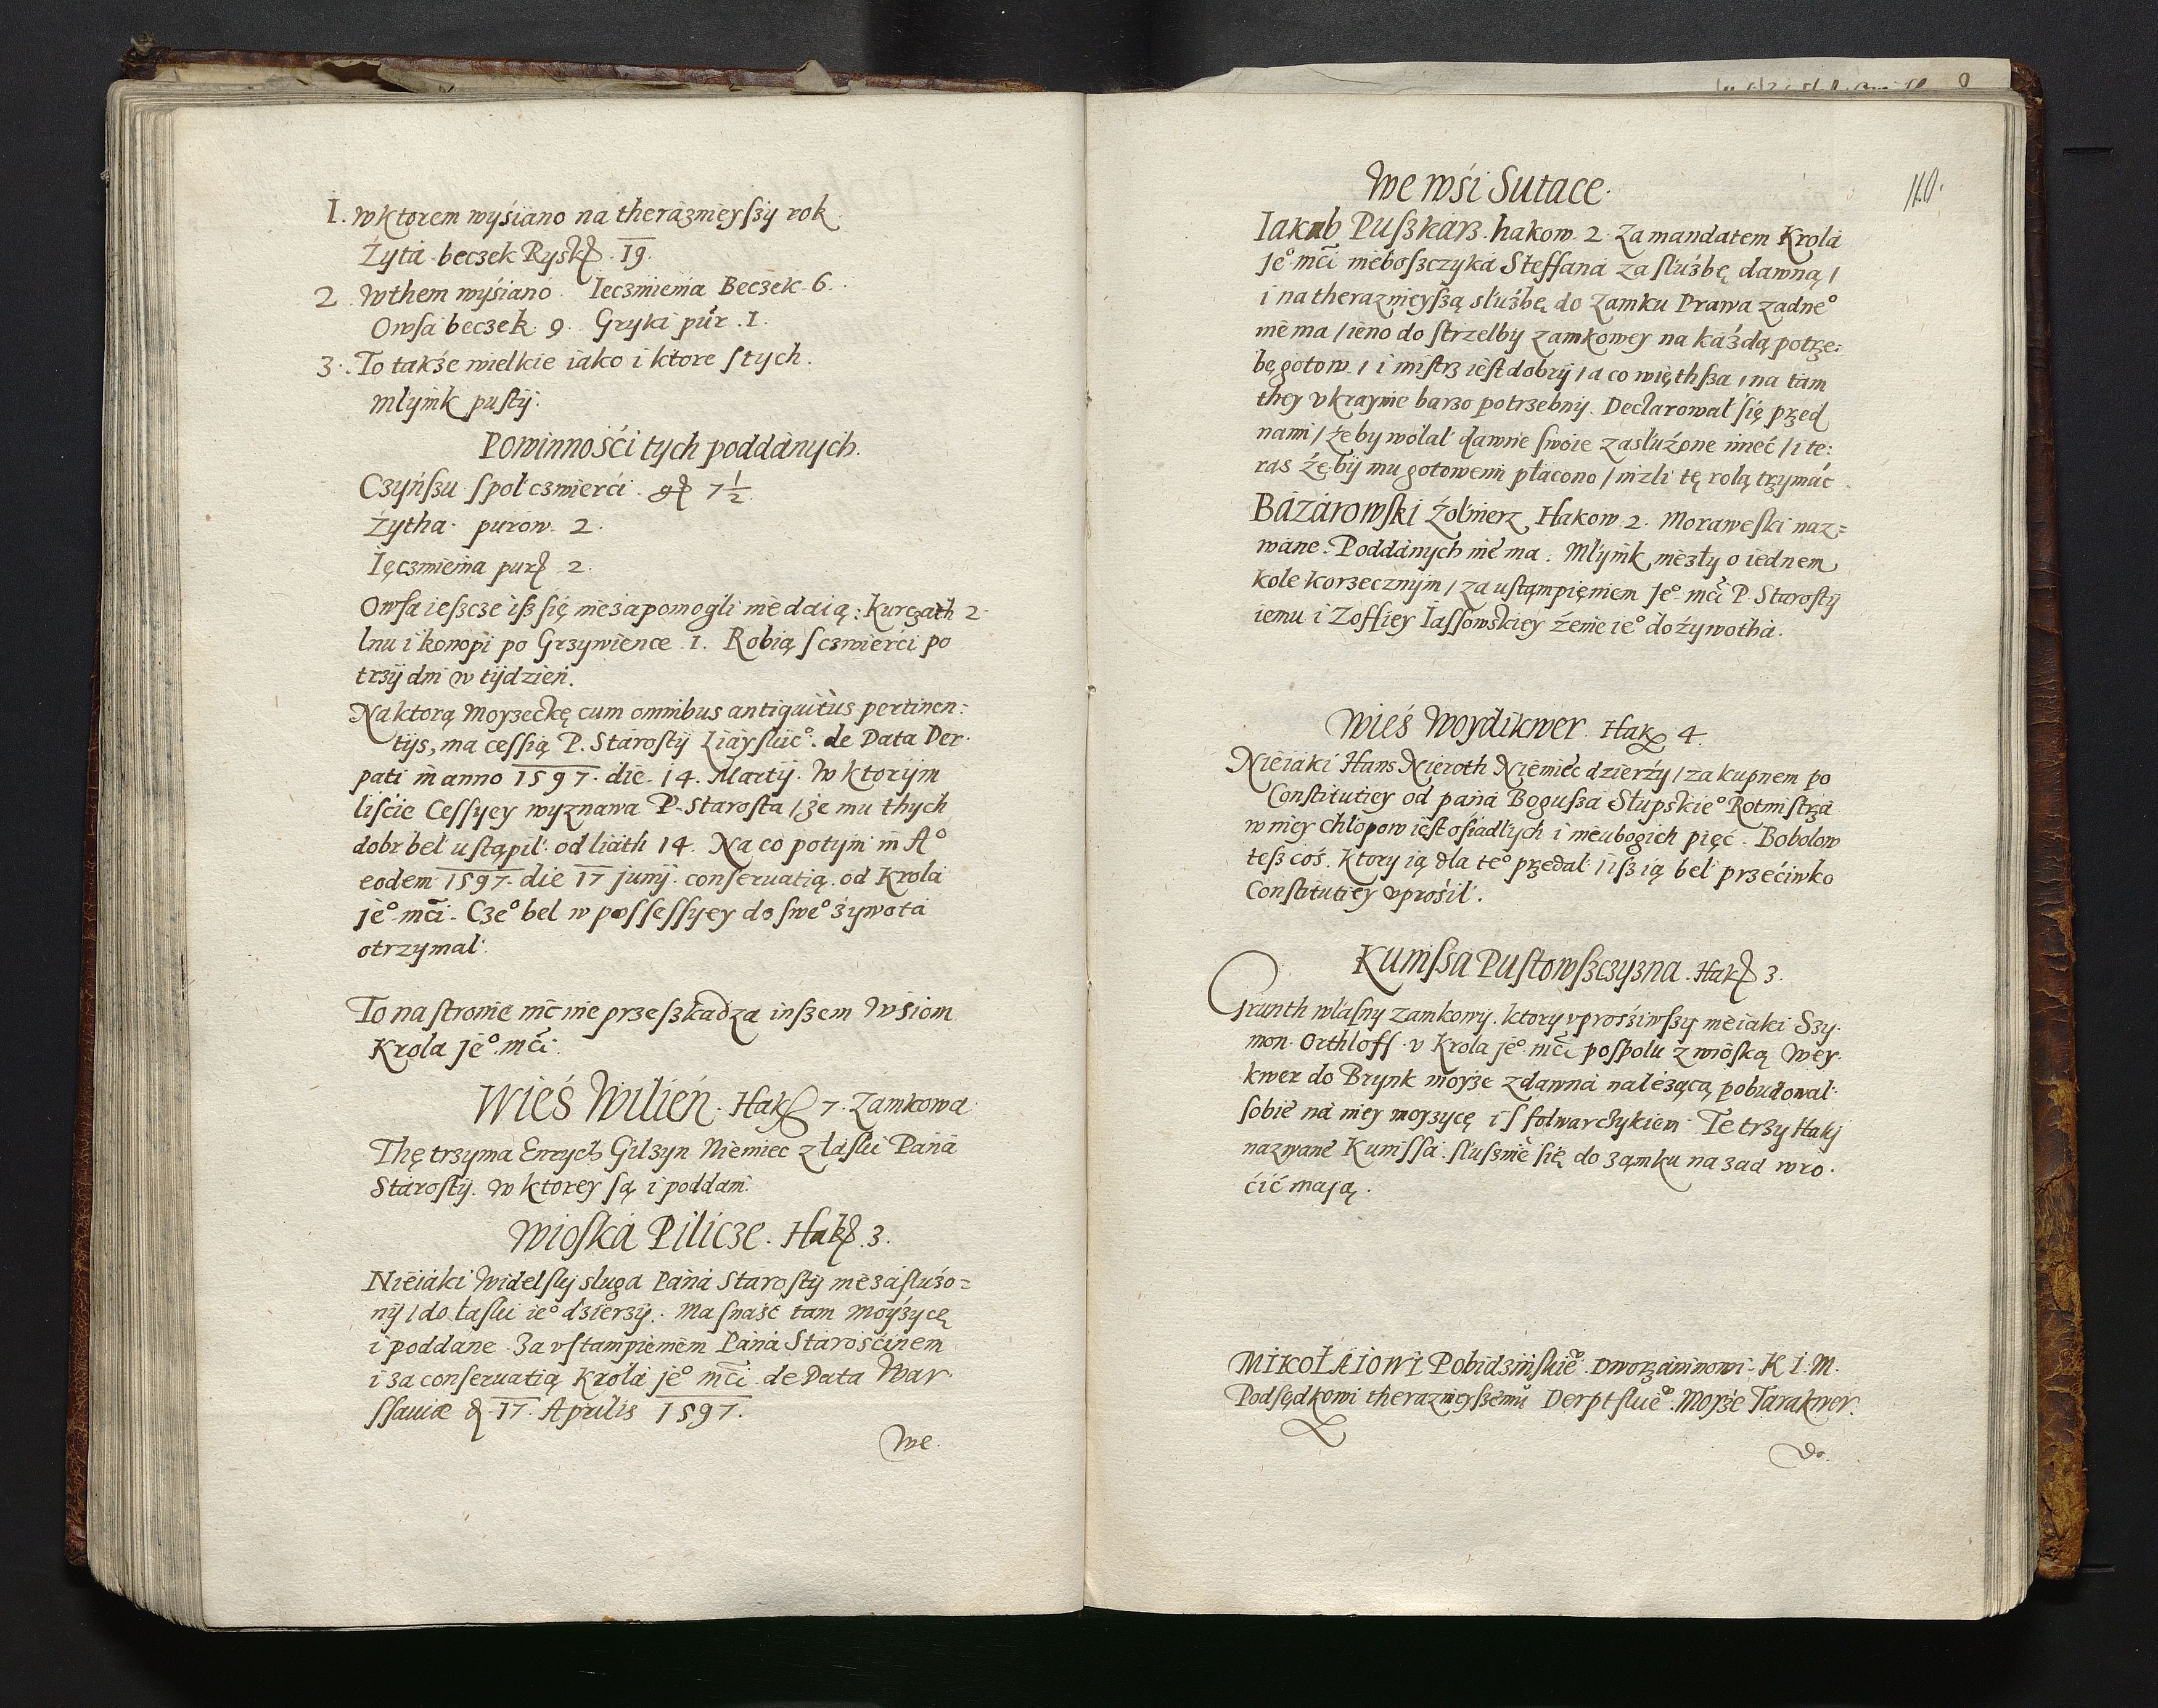 1. w ktorem wyśiano na therázmieyſzy rok
Żytá beczek Ryskȝ. 19.
2. W them wyśiano. Ięczmieniá Beczek 6.
Owſa beczek 9. Gryki pur. 1.
3. To także wielkie iáko i ktore ſ tych.
Młynik puſty.
Powinnośći tych poddánych.
Czynſzu ſpoł czwierći. gȝ 7½
Żythá purow 2.
Ięczmieniá purȝ 2.
Owſa ieſzcze iſz ſię niezápomogli nie dáią: kurcząth 2.
lnu i konopi po Grzywience 1. Robią ſ czwierći po
trzy dni w tydzień.
Na ktorą Moyzeckę cum omnibus antiquitus pertinen:
tijs, ma ceſſią P. Stároſty Liayſkie°. de Data Der.
pati in anno 1597. die 14. Martij. W ktorym
liſcie Ceſſyey wyznawa P. Staroſta / że mu thych
dobr bel uſtąpił od liath 14. Na co potym in A°
eodem 1597. die 17 Junij. conſeruatią od Krolá
Je° mći. Cze° bel w poſſeſſyey do ſwe° żywotá
otrzymał.
To na ſtronie nic nie przeſzkadza inſzem Wśiom
Krolá Je° mći.
Wieś Wilień. Hakȝ 7. Zamkowa
Thę trzyma Enrych Gilzyn Niemiec z łáſki Páná
Stároſty. W ktorey są i poddáni.
Wioſká Piličze. Hakȝ 3.
Nieiáki Widelſky sługa Páná Stároſty niezáſłużo=
ny / do łaſki ie° dzierży. Ma ſnáść tam Moyżycę
i poddáne. Zá vſtampieniem Páná Stárośćinem
i zá conſeruatią Krolá Je° mći de Data War
ſſauiæ d. 17. Aprilis 1597.
We
110.
We wśi Sutace.
Iakub Puſzkarz. hakow 2. Zá mandatem Krolá
Je° mći nieboſzczyká Steffaná zá ſłużbę dawną /
i na therazmieyſzą służbę do Zamku Prawa żadne°
nie ma / ieno do ſtrzelby zamkowey na káżdą potrze:
bę gotow / i miſtrz ieſt dobry / a co więthſza / na tám
they vkraynie bárzo potrzebny. Declarował się przed
nami / że by wolał dawne ſwoie záſłużone mieć / i te:
ras żęby mu gotowemi płacono / niżli tę rolą trzymáć.
Bázárowſki Żołnierz Hakow 2. Moraweſki naz=
wáne. Poddánych nie ma. Młynik niezły o iednem
kole korzecznym / zá uſtąmpieniem Je° mći P. Staroſty
iemu i Zoffiey Iaſſowſkiey żenie ie° do żywothá.
Wieś Woydikwer. Hakȝ 4.
Nieiáki Hans Nieroth Niemiec dzierży / zá kupnem po
Conſtitutiey od páná Boguſzá Słupskie° Rotmiſtrzá
w niey chłopow ieſt ośiadłych i nieubogich pięć. Bobolow
teſz coś. Ktory ią dla te° przedał / iſz ią bel przećiwko
Conſtitutiey vprośił.
Kumſsá Puſtowſzczyzna. Hakȝ 3.
Grunth właſny zamkowy. ktory vprośiwſzy nieiáki Szy.
mon Orthloff. v Krolá Je° mći poſpołu z wioſką Wey.
kwer do Brynk moyze zdawná należącą pobudował
sobie ná niey moyzycę i ſ folwarczykiem. Te trzy Haki
nazwáne Kumſſa. ſłuſznie ſię do zamku na zad wro.
ćić mają.
MIKOŁAIOWI Pobidzińſkie° Dworzáninowi K I. M.
Podſędkowi therazmieyſzemu Derptſkie°. Moyże Tarakwer.
do.